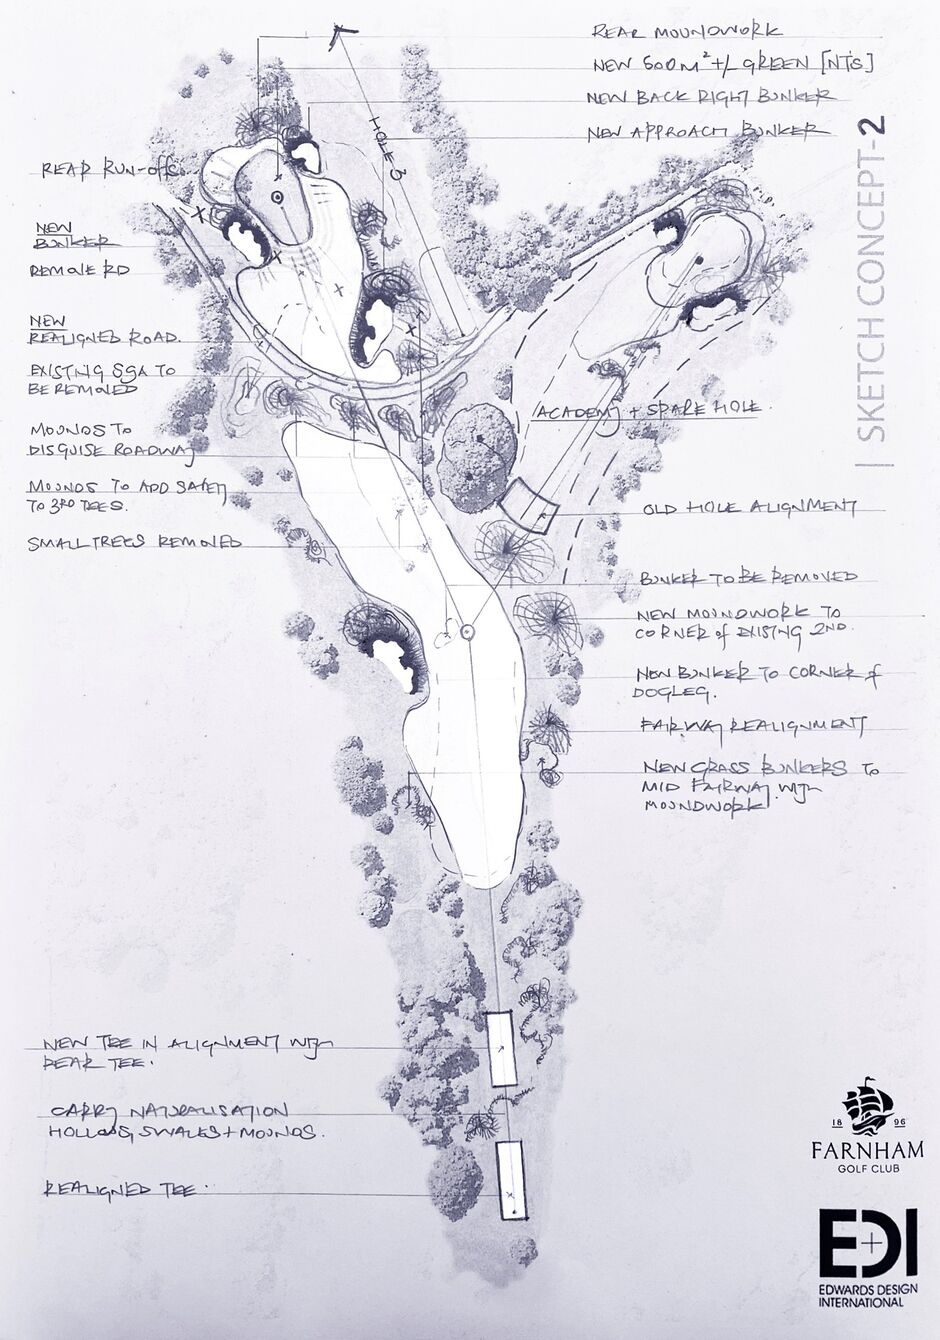 REAR MOUNDWORK
NEW 500M²+/- GREEN [NTS]
NEW BACK RIGHT BUNKER
NEW APPROACH BUNKER
HOLE 3
REAR RUN-OFFS
NEW
BUNKER
REMOVE RD
NEW
REALIGNED ROAD.
EXISTING SGA TO
BE REMOVED
MOUNDS TO
DISGUISE ROADWAY
MOUNDS TO ADD SAFETY
TO 3RD TEES.
SMALL TREES REMOVED
SKETCH CONCEPT-2
ACADEMY + SPARE HOLE.
OLD HOLE ALIGNMENT
BUNKER TO BE REMOVED
NEW MOUNDWORK TO
CORNER of EXISTING 2ND.
NEW BUNKER TO CORNER of
DOGLEG.
FAIRWAY REALIGNMENT
NEW GRASS BUNKERS TO
MID FAIRWAY WITH
MOUNDWORK
NEW TEE IN ALIGNMENT WITH
REAR TEE.
CARRY NATURALISATION
HOLLOWS, SWALES + MOUNDS.
REALIGNED TEE.
18 96
FARNHAM
GOLF CLUB
EDI
EDWARDS DESIGN
INTERNATIONAL